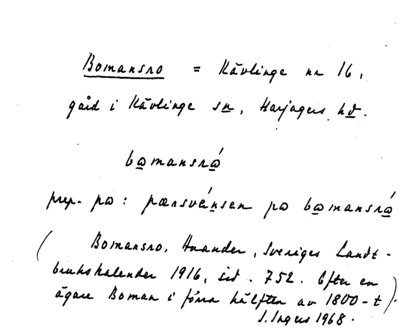 Bomansro = Kävlinge nr 16,
gård i Kävlinge sn, Harjagers hd.
bomansrá
prep. pa: pærsvánsen pa bomansrá
(Bomansro, Kvander, Sveriges Landt-
brukskalender 1916, sid. 752. Efter en
ägare Boman i förra hälften av 1800-t)
I. Ingers 1968.